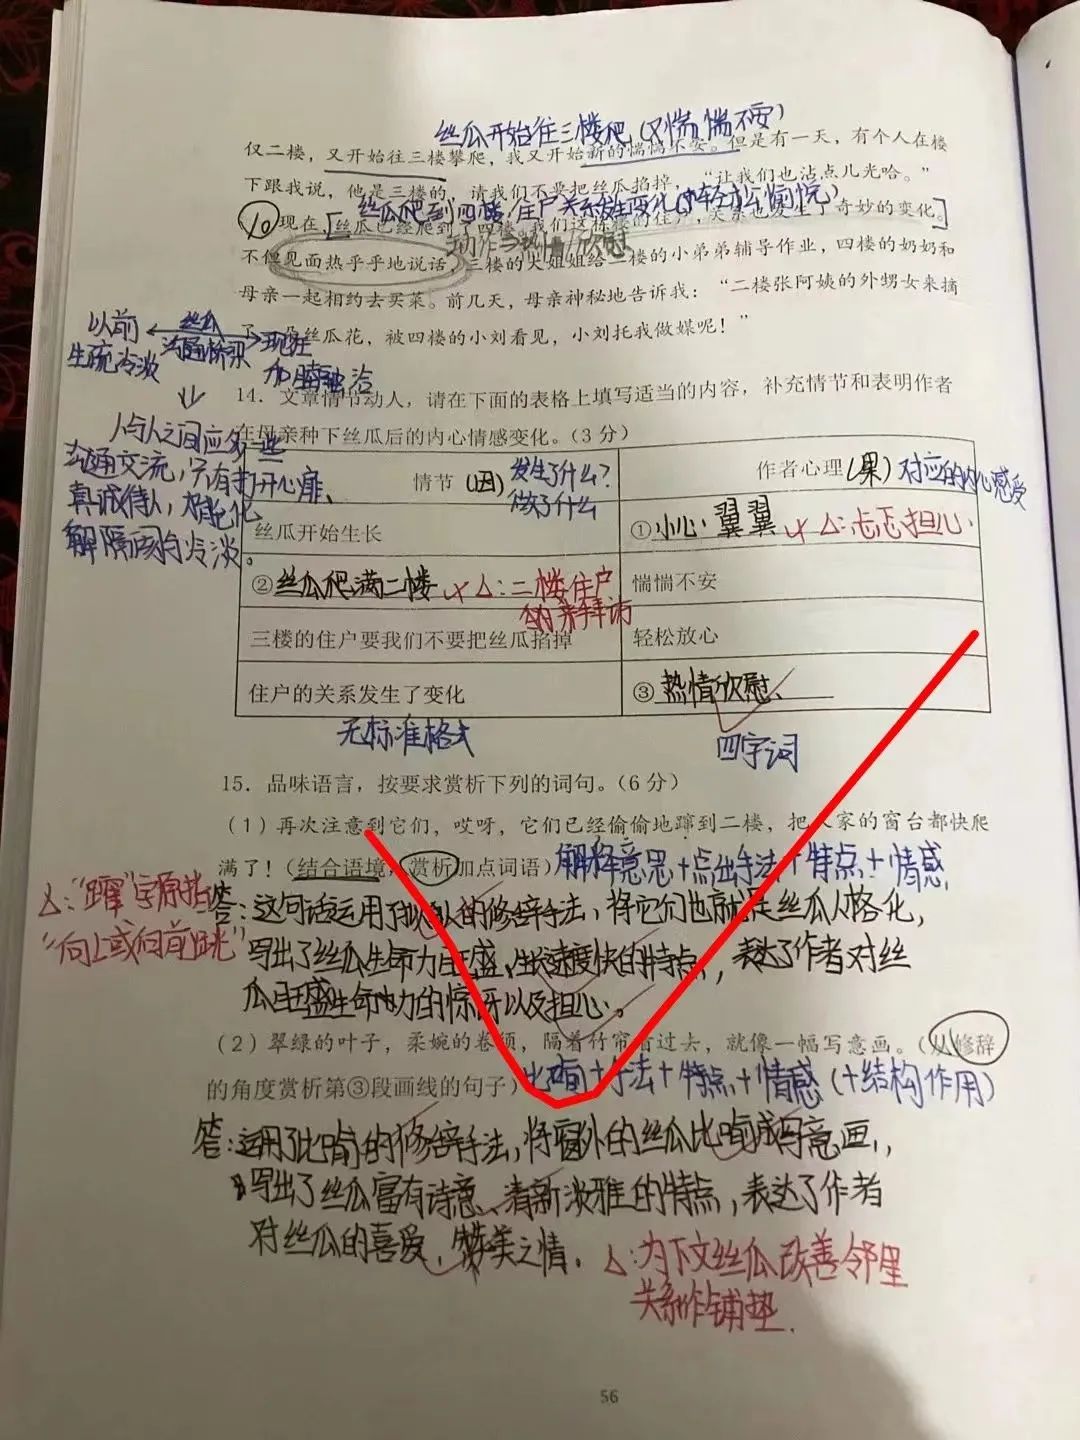 丝瓜开始往三楼爬(又惴惴不安)
仅二楼，又开始往三楼攀爬，我又开始新的惴惴不安。但是有一天，有个人在楼
下跟我说，他是三楼的，请我们不要把丝瓜掐掉，“让我们也沾点儿光哈。”
丝瓜爬到四楼，住户关系发生变化(轻松愉悦)
⑩现在，丝瓜已经爬到了四楼，我们这栋楼的住户，关系也发生了奇妙的变化。
欣慰
不仅见面热乎乎地说话，三楼的大姐姐给二楼的小弟弟辅导作业，四楼的奶奶和
母亲一起相约去买菜。前几天，母亲神秘地告诉我：“二楼张阿姨的外甥女来摘
丝瓜花，被四楼的小刘看见，小刘托我做媒呢！”
以前
生疏冷淡
丝瓜
沟通桥梁
现在
加融洽
人与人之间应多一些
沟通交流，只有打开心扉、
真诚待人，才能化
解隔阂与冷淡。
14．文章情节动人，请在下面的表格上填写适当的内容，补充情节和表明作者
在母亲种下丝瓜后的内心情感变化。(3 分)
情节(因) 发生了什么？
做了什么
作者心理(果)对应的内心感受
丝瓜开始生长
①小心翼翼 × △:忐忑担心
②丝瓜爬满二楼 × △:二楼住户
的来拜访
惴惴不安
三楼的住户要我们不要把丝瓜掐掉
轻松放心
住户的关系发生了变化
③热情欣慰、
无标准格式
四字词
15．品味语言，按要求赏析下列的词句。(6 分)
(1)再次注意到它们，哎呀，它们已经偷偷地蹿到二楼，把人家的窗台都快爬
满了！(结合语境，赏析加点词语)解释意思+点出手法+特点+情感
△:“蹿”字原指
“向上或向前跳”
答:这句话运用了拟人的修辞手法，将它们也就是丝瓜人格化，
写出了丝瓜生命力旺盛、生长速度快的特点，表达了作者对丝
瓜旺盛生命力的惊讶以及担心。
(2)翠绿的叶子，柔婉的卷须，隔着竹帘看过去，就像一幅写意画。(从修辞
的角度赏析第③段画线的句子)比喻+手法+特点+情感(+结构作用)
答:运用了比喻的修辞手法，将窗外的丝瓜比喻成写意画，
写出了丝瓜富有诗意、清新淡雅的特点，表达了作者
对丝瓜的喜爱，赞美之情。
△:为下文丝瓜改善邻里
关系作铺垫.
56